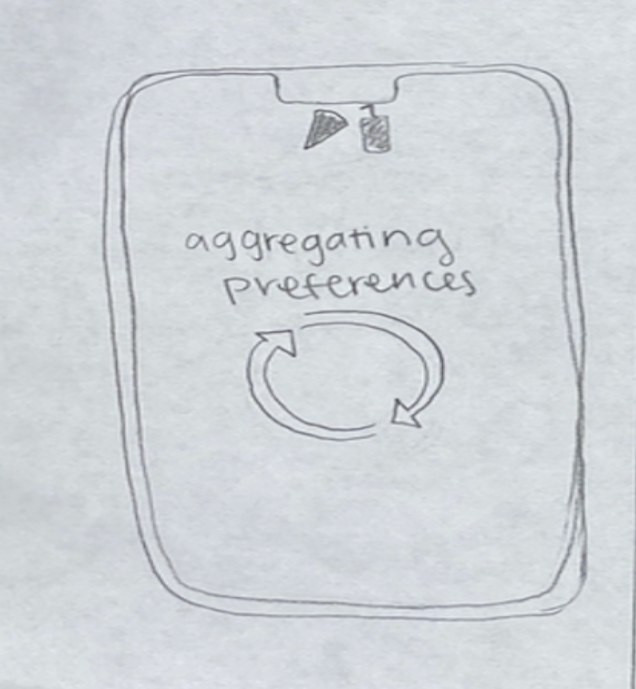 aggregating
preferences